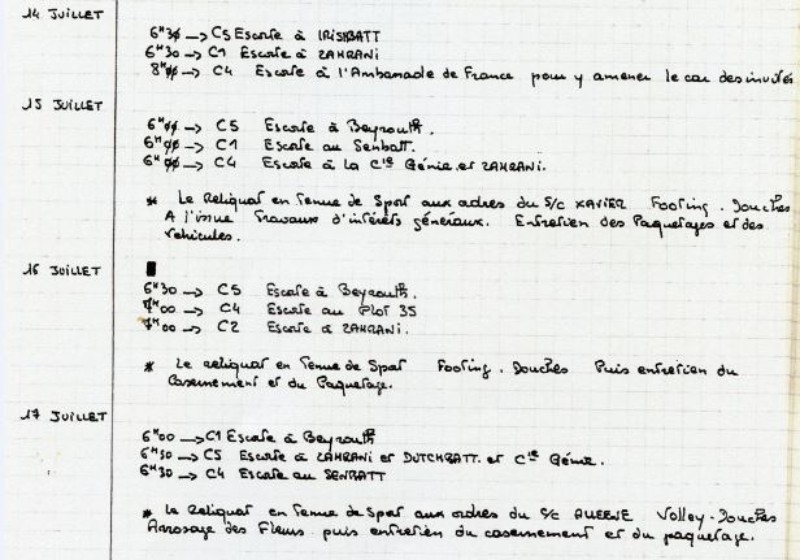 14 JUILLET
6H30 → C5 Escorte à IRISHBATT
6H30 → C1 Escorte à ZAHRANI
8H00 → C4 Escorte à l'Ambanade de France pour y amener le car des invités
15 JUILLET
6H00 → C5 Escorte à Beyrouth.
6H00 → C1 Escorte au Senbatt.
6H00 → C4 Escorte à la Cie Génie et ZAHRANI.
* Le Reliquat en Tenue de Sport aux ordres du S/C XAVIER Footing. Douches
A l'issue Travaux d'intérêts généraux. Entretien des Paquetages et des
Véhicules.
16 JUILLET
6H30 → C5 Escorte à Beyrouth.
7H00 → C4 Escorte au Plot 35
7H00 → C2 Escorte à ZAHRANI.
* Le reliquat en Tenue de Sport Footing. Douches Puis entretien du
Casernement et du Paquetage.
17 JUILLET
6H00 → C1 Escorte à Beyrouth
6H30 → C5 Escorte à ZAHRANI et DUTCHBATT. et Cie Génie.
6H30 → C4 Escorte au SENBATT
* Le Reliquat en Tenue de Sport aux ordres du S/C Volley. Douches
Arrosage des Fleurs puis entretien du casernement et du paquetage.